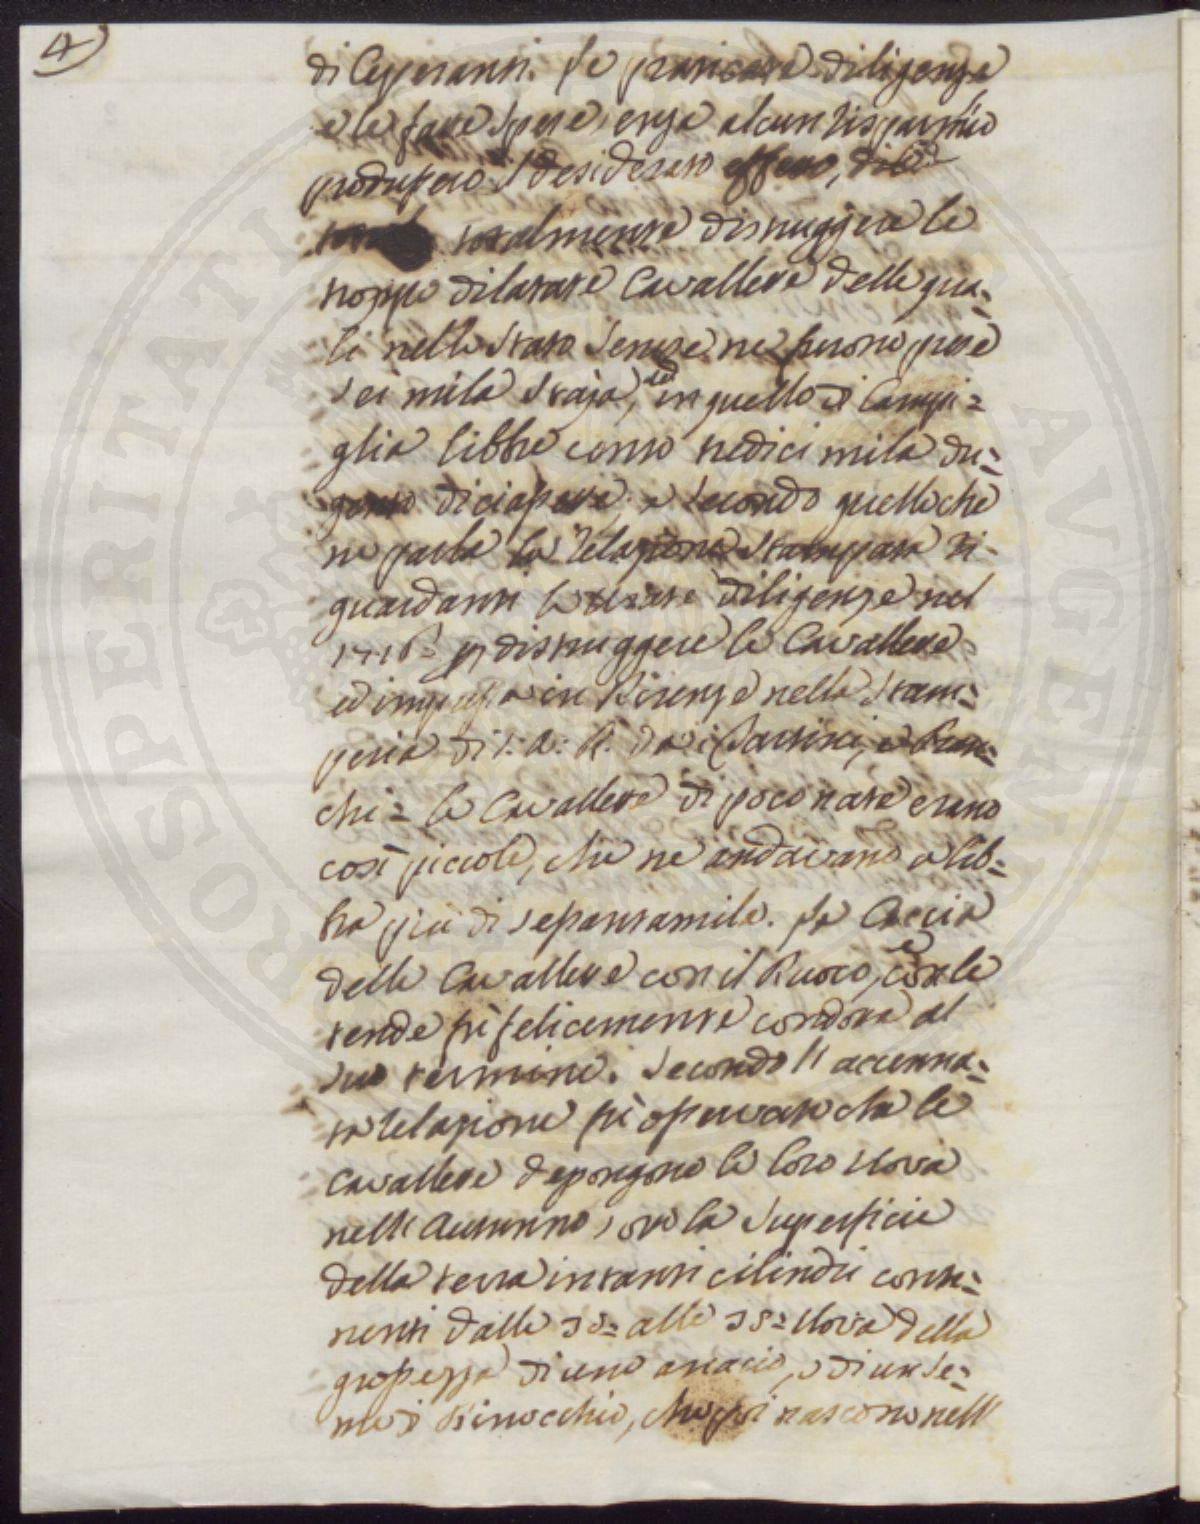 4
di Cepperanti. Le praticate diligenze
e le fatte spese senza alcun risparmio
produssero il desiderato effetto, di
totalmente distruggere le
troppo dilatate Cavallette delle qua-
li nello Stato Senese ne furono prese
sei mila staja, ed in quello di Campi=
glia libbre cento tredici mila du=
gento diciasette, e secondo quello che
ne parla la relazione stampata ri-
guardanti le usate diligenze nel
1716= p distruggere le Cavallette
ed impressa in Firenze nella Stam=
peria di S: A: R: da i Tartini, e Fran=
chi= le Cavallette di poco nate erano
così piccole, che ne andavano a lib=
bra più di settantamila. La Caccia
delle Cavallette con il Fuoco, e con le
tende fù felicemente condotta al
suo termine. Secondo l'accenna=
ta relazione fù osservato che le
Cavallette depongono le loro Uova
nell'Autunno sotto la Superficie
della terra in tanti cilindri conte=
nenti dalle 30= alle 35= Uova della
grossezza di uno anacio, o di un se=
me di Finocchio, che poi nascono nell'
ROSPERITATI AVGENDAE